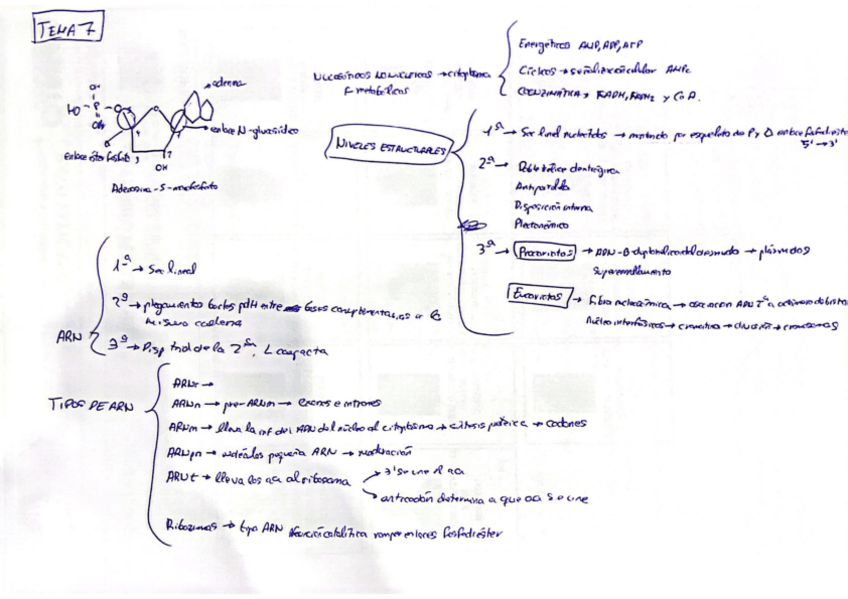 TEMA 7
OH
HO - P - O
OH
O
adenina
enlace N-glucosídico
enlace éster fosfato
OH
Adenosina-5-monofosfato
NUCLEÓTIDOS NO NUCLEICOS → citoplasma
Energéticos AMP, ADP, ATP
Cíclicos → señalización celular AMPc
COENZIMÁTICA → FADH, FADH2 y CoA.
NIVELES ESTRUCTURALES
1ª → Sec lineal nucleótidos → por esqueleto de P y enlace fosfodiéster
5' → 3'
2ª → Doble hélice dextrógira
Antiparalela
Disposición interna
Plectonémico
3ª → Procariotas → ADN-B → plásmidos
Superenrollamiento
Eucariotas → Fibra nucleosómica → ADN 2ª a
Núcleo interfásico → cromatina → división → cromosomas
ARN
1ª → Sec lineal
2ª → plegamiento pdH entre bases complementarias a la
misma cadena
3ª → Disp trid de la 2ª, compacta
TIPOS DE ARN
ARNr →
ARNn → pre-ARNm → exones e intrones
ARNm → lleva la inf del ADN del núcleo al citoplasma → → codones
ARNpn → moléculas pequeña ARN →
ARNt → lleva los aa al ribosoma
→ 3' se une el aa
→ anticodón determina a que aa se une
Ribozimas → tipo ARN función catalítica romper enlaces fosfodiéster